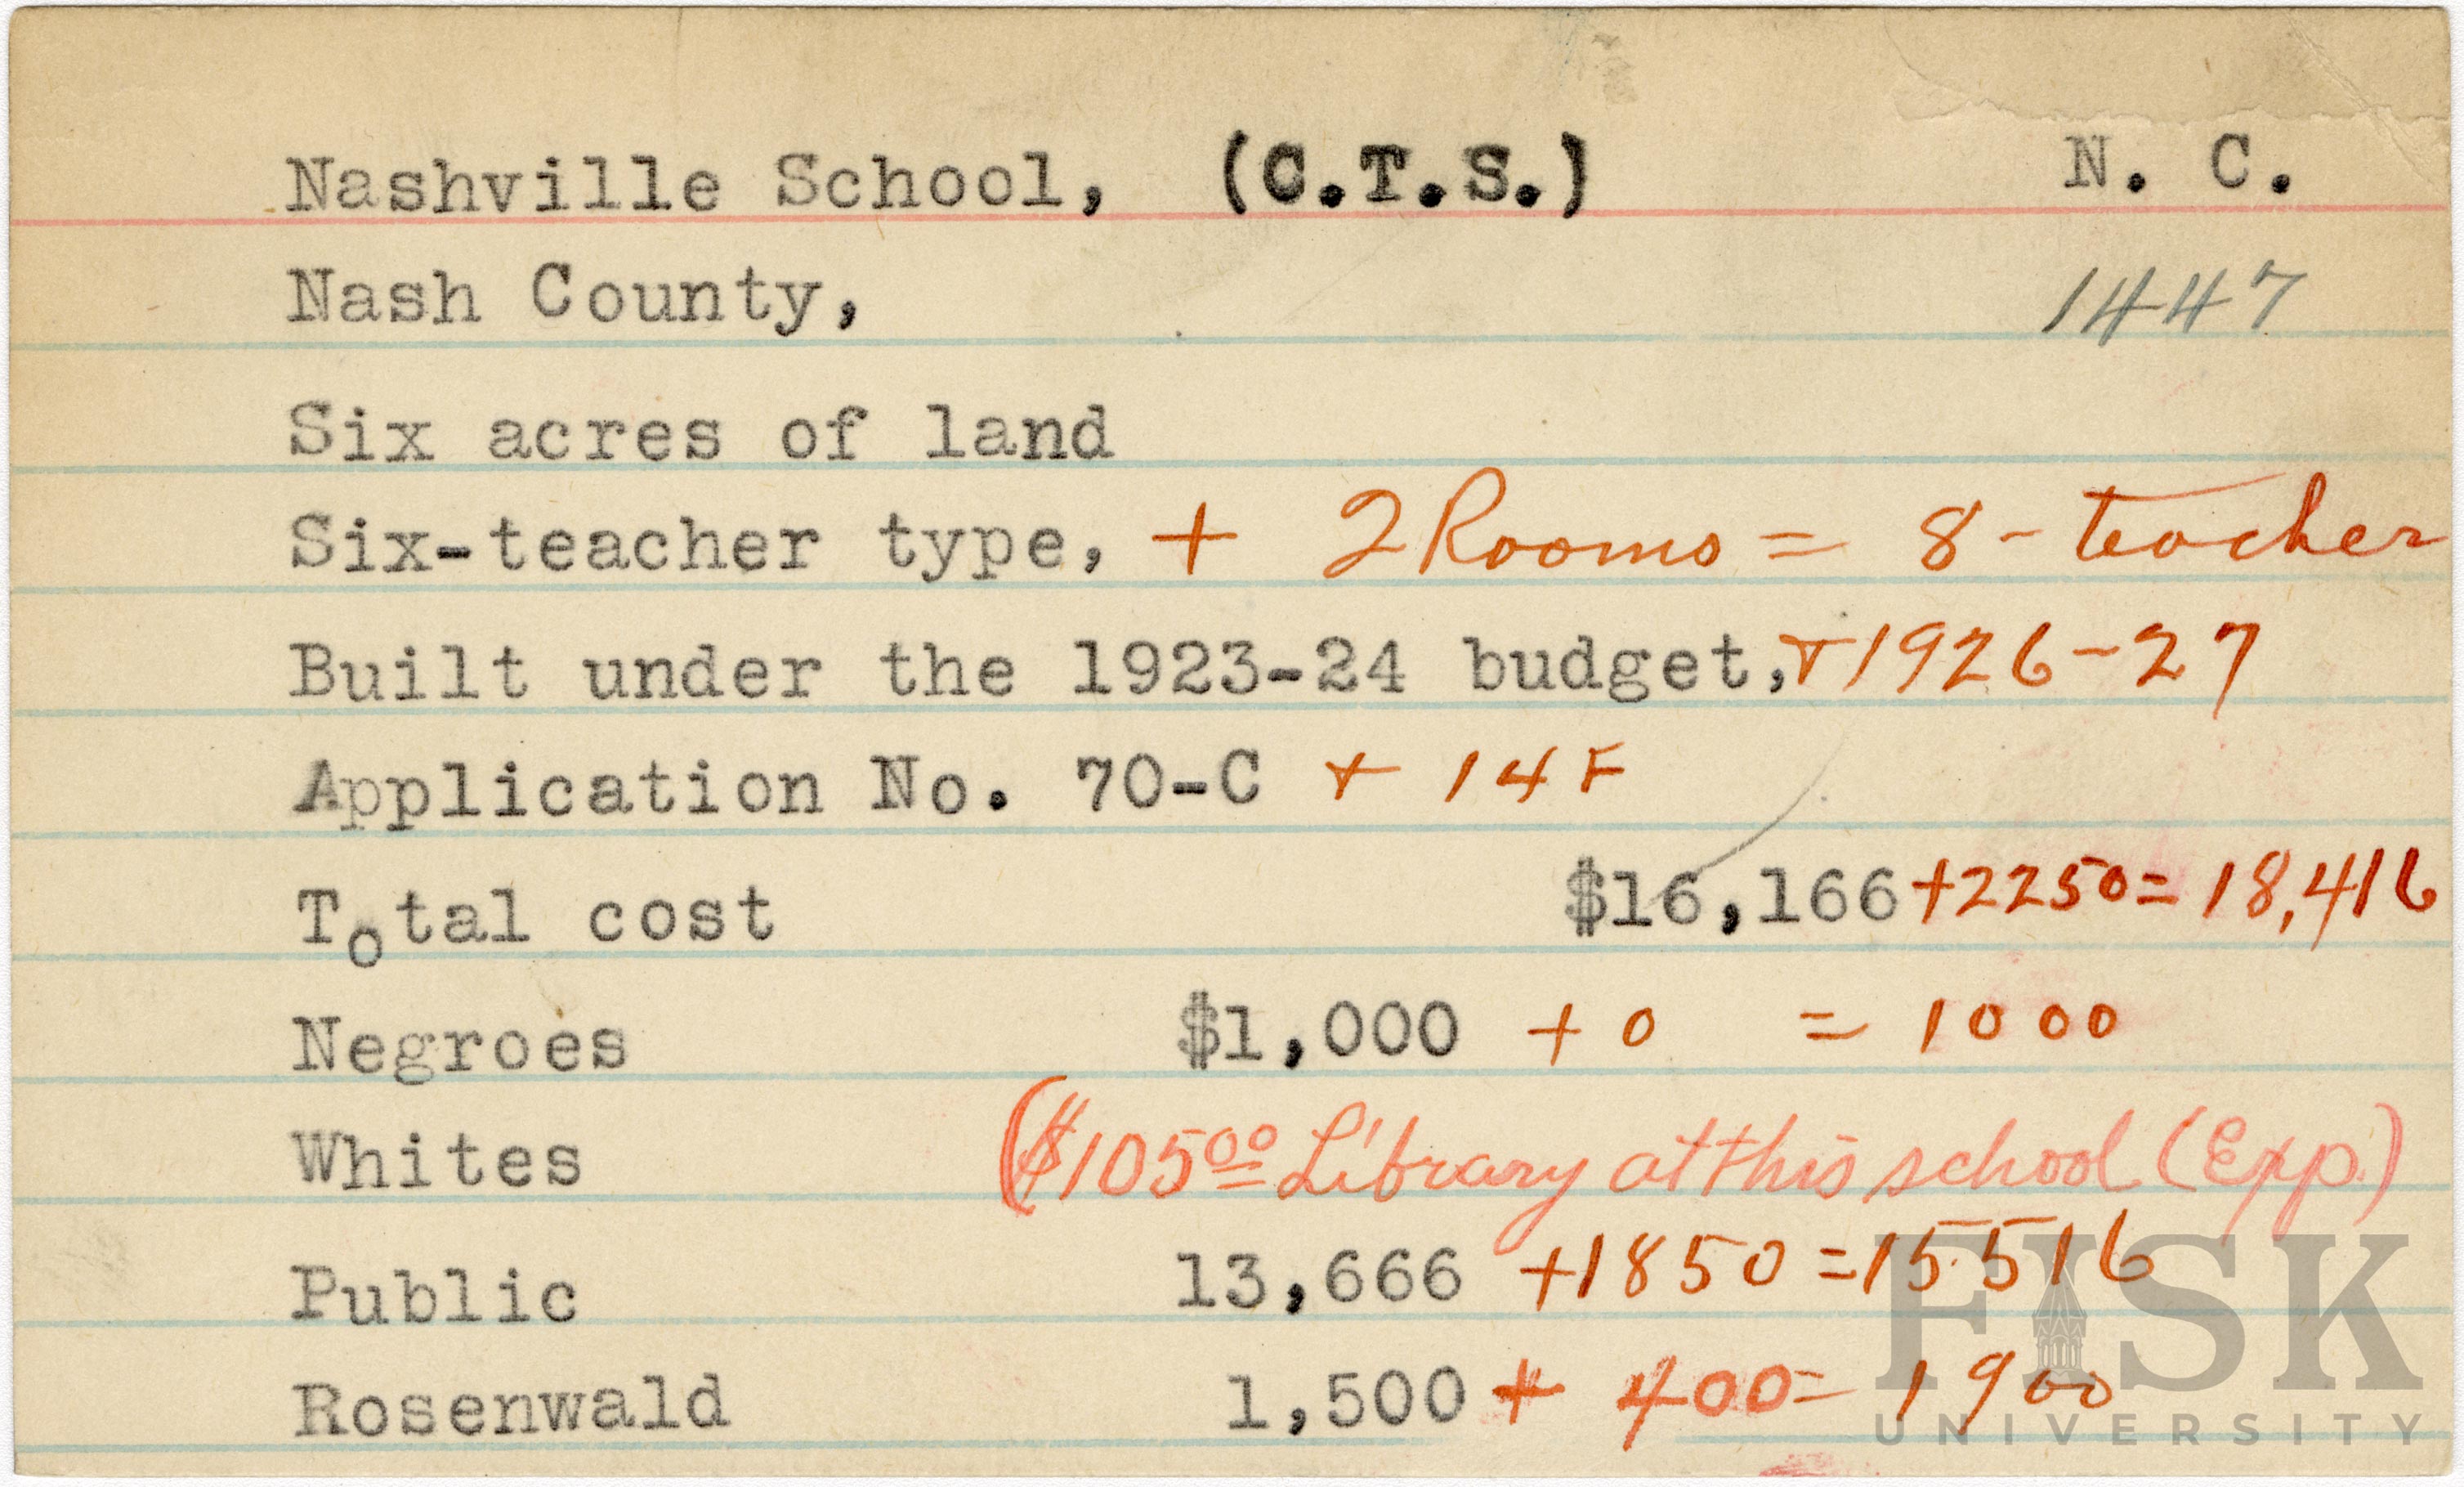 Nashville School, (C.T.S.) N. C.
Nash County, 1447
Six acres of land
Six-teacher type, + 2 Rooms = 8 - teacher
Built under the 1923-24 budget, + 1926-27
Application No. 70-C + 14 F
Total cost $16,166 +2250= 18,416
Negroes $1,000 + 0 = 1000
Whites ($105.00 Library at this school (Exp.)
Public 13,666 +1850 =15516
Rosenwald 1,500 + 400= 1900
FISK
UNIVERSITY